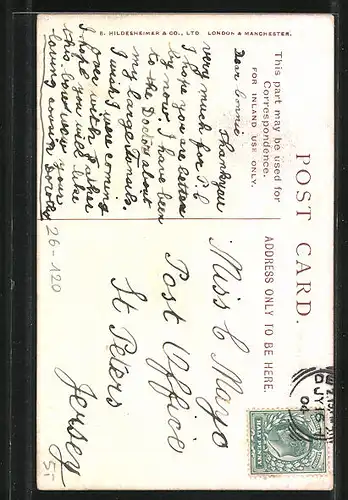 E. HILDESHEIMER & CO., LTD LONDON & MANCHESTER.
POST CARD.
This part may be used for
Correspondence.
FOR INLAND USE ONLY.
ADDRESS ONLY TO BE HERE
Dear Connie
Thankyou
very much for P.C
I hope you are better
by now. I have been
to the Doctor about
my large Tonsils.
I wish I were coming
over with Father
I hope you will like
this
from your
loving cousin Dorothy
Miss C Mayo
Post Office
St Peters
Jersey
26-120
JY
04
HALFPENNY